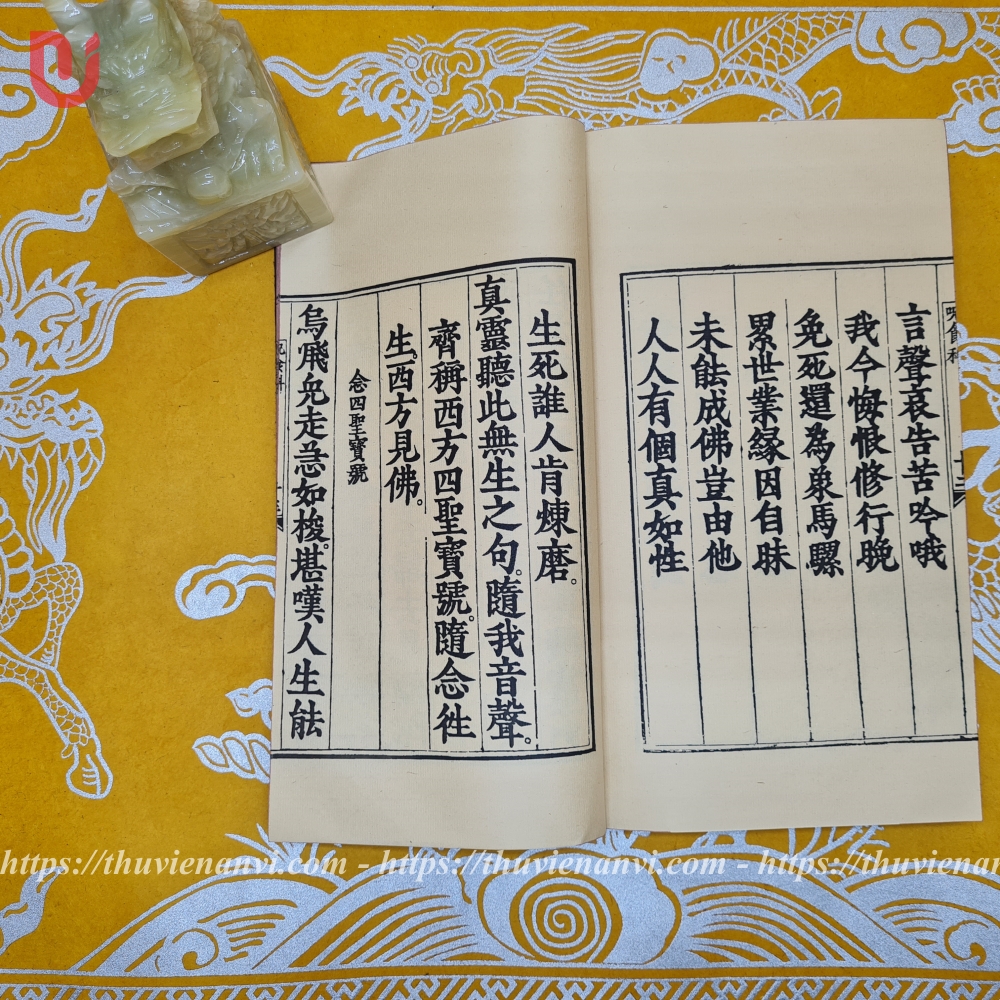 言聲哀告苦吟哦
我今悔恨修行晚
免死還為象馬騾
累世業緣因自昧
未䏻成佛豈由他
人人有個真如性
生死誰人肯煉磨。
真靈聽此無生之句。隨我音聲。
齊稱西方四聖寶號。隨念徃
生。西方見佛。
念四聖寶號
烏飛兎走急如梭。堪嘆人生䏻
https://thuvienanvi.com - https://thuvienanvi.com - https://thuvienanvi